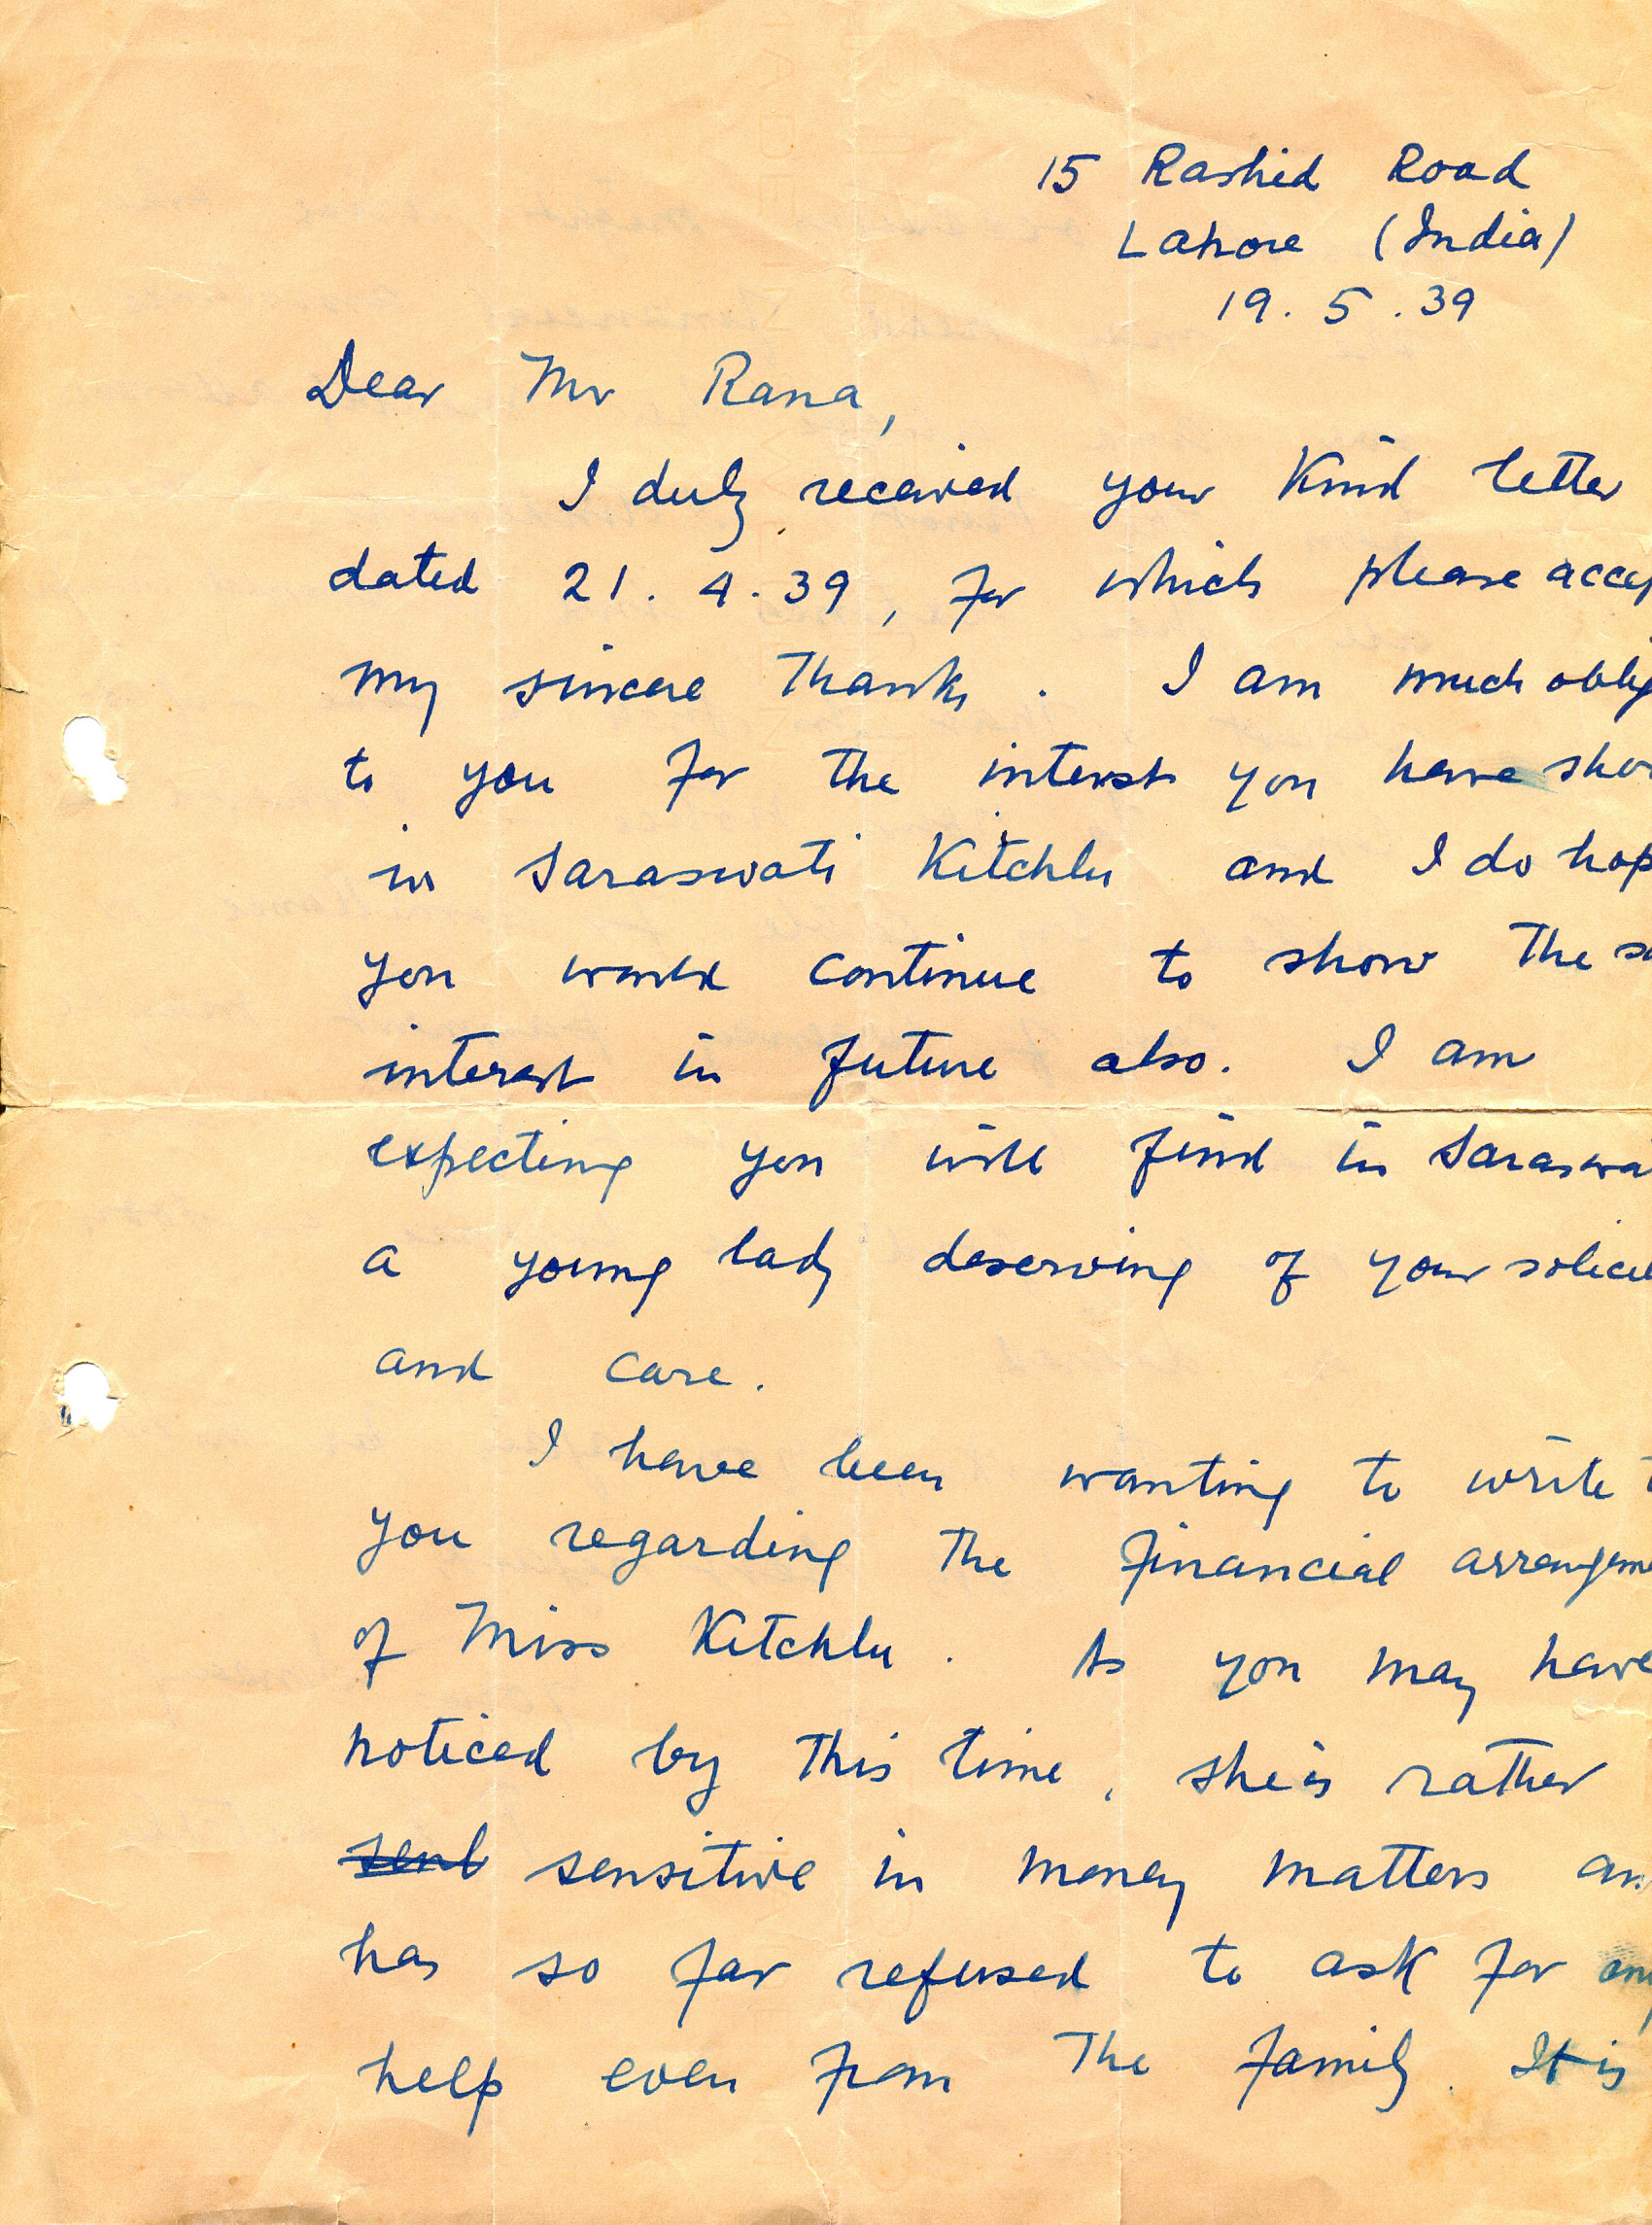 15 Rashid Road
Lahore (India)
19. 5. 39
Dear Mr Rana,
I duly received your kind letter
dated 21. 4. 39, for which please accep
my sincere thanks. I am much oblig
to you for the interest you have show
in Saraswati Kitchlu and I do hop
you would continue to show the sa
interest in future also. I am
expecting you will find in Saraswa
a young lady deserving of your solicit
and care.
I have been wanting to write t
you regarding the financial arrangeme
of Miss Kitchlu. As you may have
noticed by this time, she is rather
sensitive in money matters an
has so far refused to ask for any
help even from the family. It is